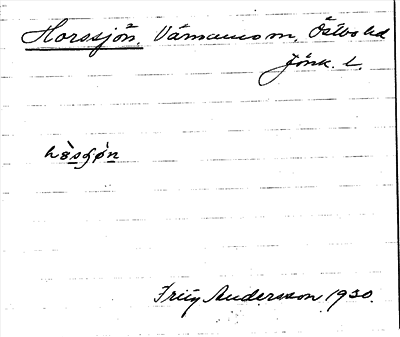 Horssjön. Värnamo sn, Östbo hd
Jönk. l.
hàsʃø̀n
Frig Andersson 1930.